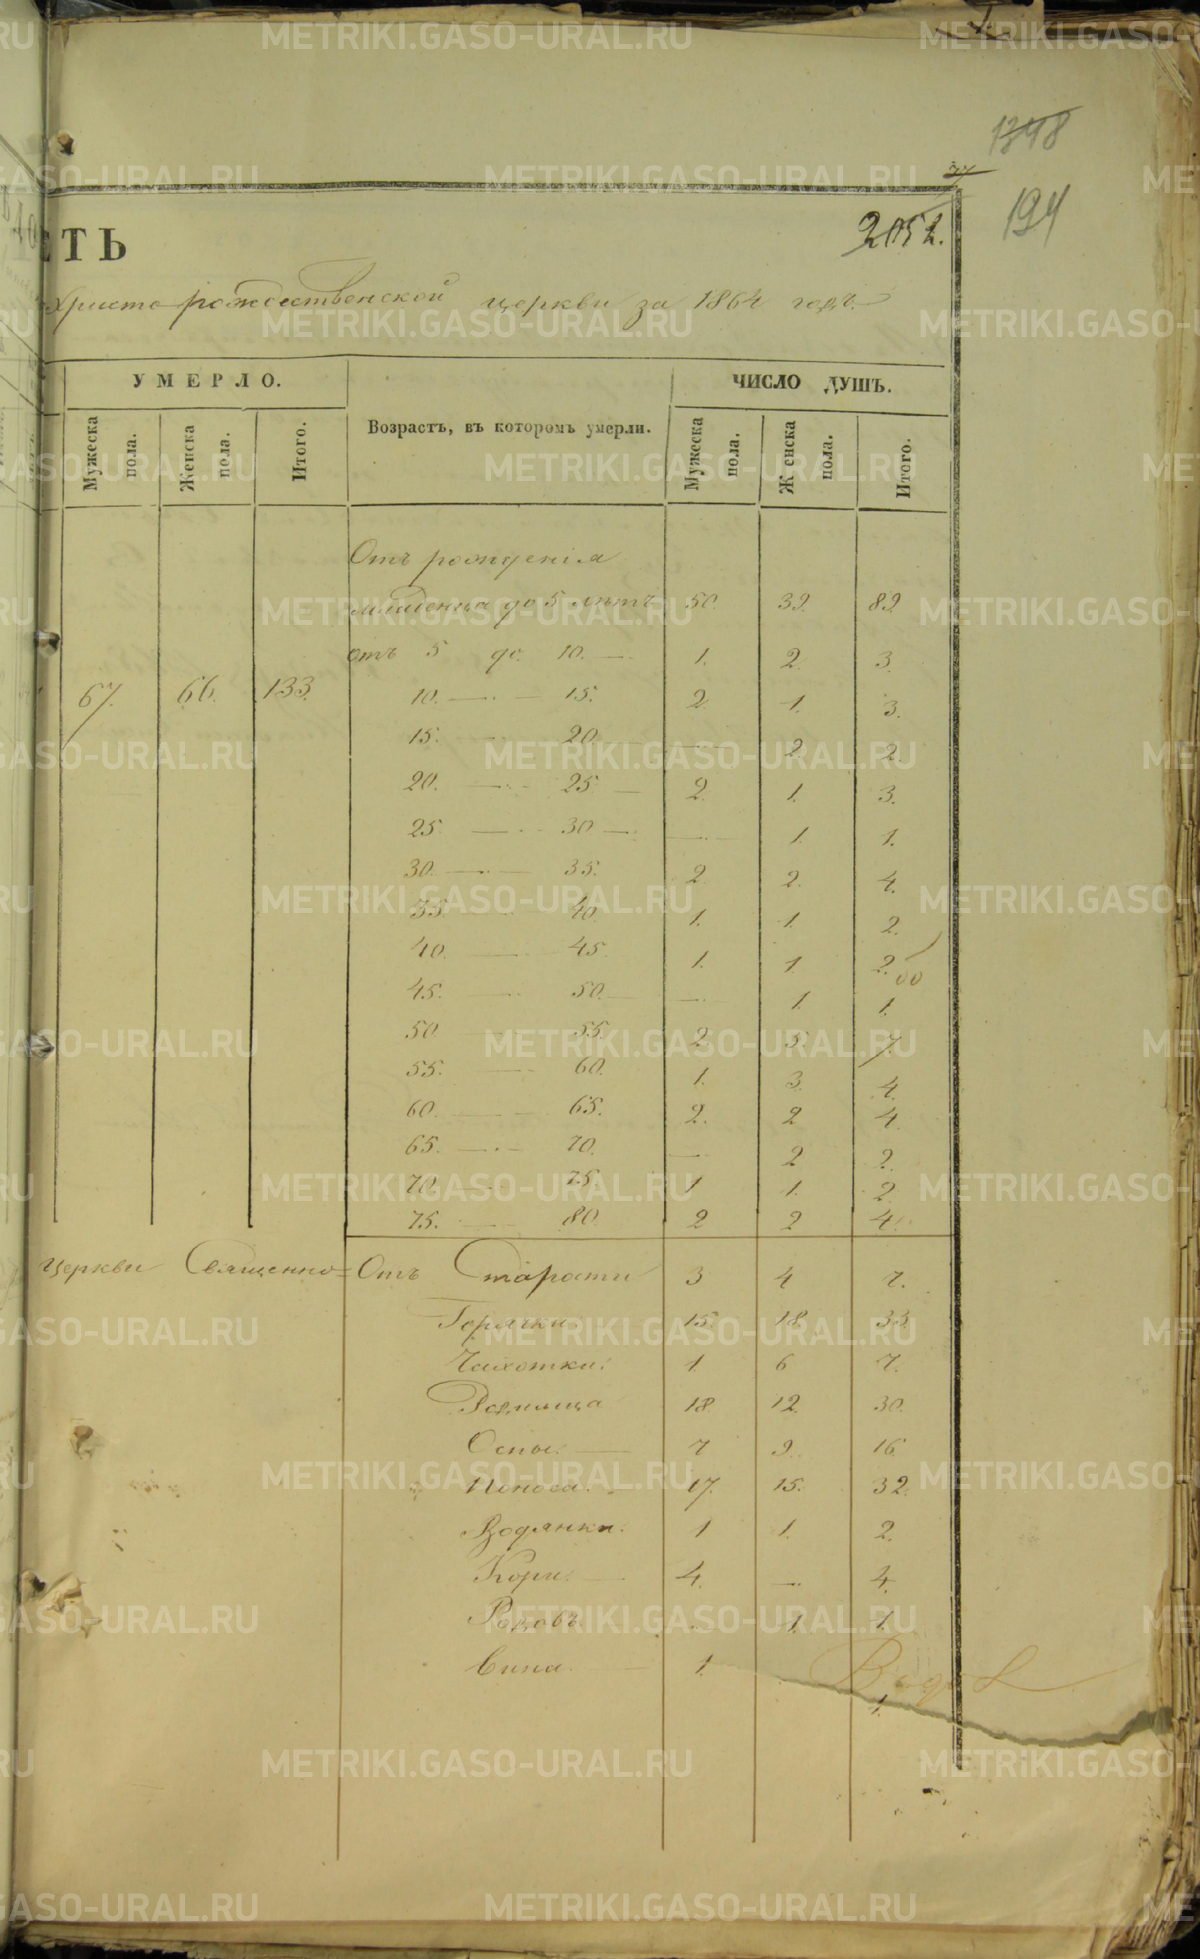 1348
194
2052.
СТЬ
Христорождественской церкви за 1864 годъ
УМЕРЛО.
Возрастъ, въ которомъ умерли.
ЧИСЛО ДУШЪ.
Мужеска пола.
Женска пола.
Итого.
Мужеска пола.
Женска пола.
Итого.
67. 66. 133.
Отъ рожденія
младенца до 5 лѣтъ 50. 32. 82.
отъ 5 до 10. — 1. 2. 3.
10. — 15. 2. 1. 3.
15. — 20. — 2. 2.
20. — 25 — 2. 1. 3.
25. — 30 — — 1. 1.
30. — 35. 2. 2. 4.
35. — 40. 1. 1. 2.
40. — 45. 1. 1. 2.
45. — 50. — 1. 1.
50 — 55. 2. 5. 7.
55. — 60. 1. 3. 4.
60. — 65. 2. 2 4.
65. — 70. — 2 2.
70. — 75. 1 1. 2
75. — 80. 2 2 4.
церкви Священно=
Отъ Старости 3 4 7.
Горячки 15 18 33.
Чахотки. 1 6 7.
Родимца 18 12 30.
Оспы. — 7 9. 16
Поноса. 17. 15. 32.
Водянки. 1 1. 2.
Кори. — 4. — 4.
Родовъ — 1. 1.
Вина. — 1. 1.
METRIKI.GASO-URAL.RU